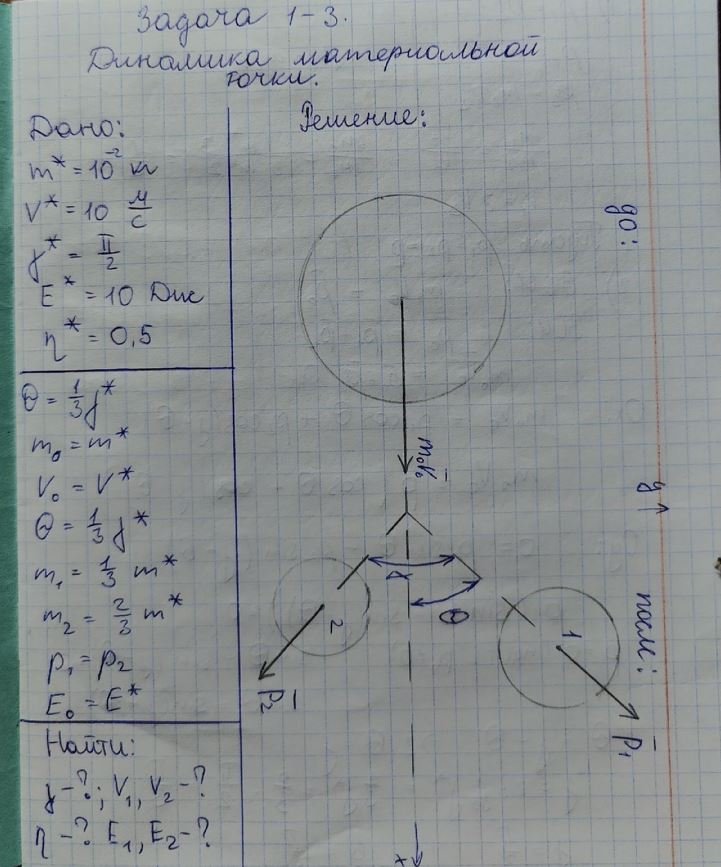 Задача 1-3.
Динамика материальной
точки.
Дано:
m* = 10⁻² кг
V* = 10 м/с
γ* = π/2
E* = 10 Дж
η* = 0,5
Θ = 1/3 γ*
m₀ = m*
V₀ = V*
Θ = 1/3 γ*
m₁ = 1/3 m*
m₂ = 2/3 m*
p₁ = p₂
E₀ = E*
Найти:
γ - ?; V₁, V₂ - ?
η - ? E₁, E₂ - ?
Решение:
до:
m₀V̄₀
y
после:
γ
Θ
1
p̄₁
2
p̄₂
x